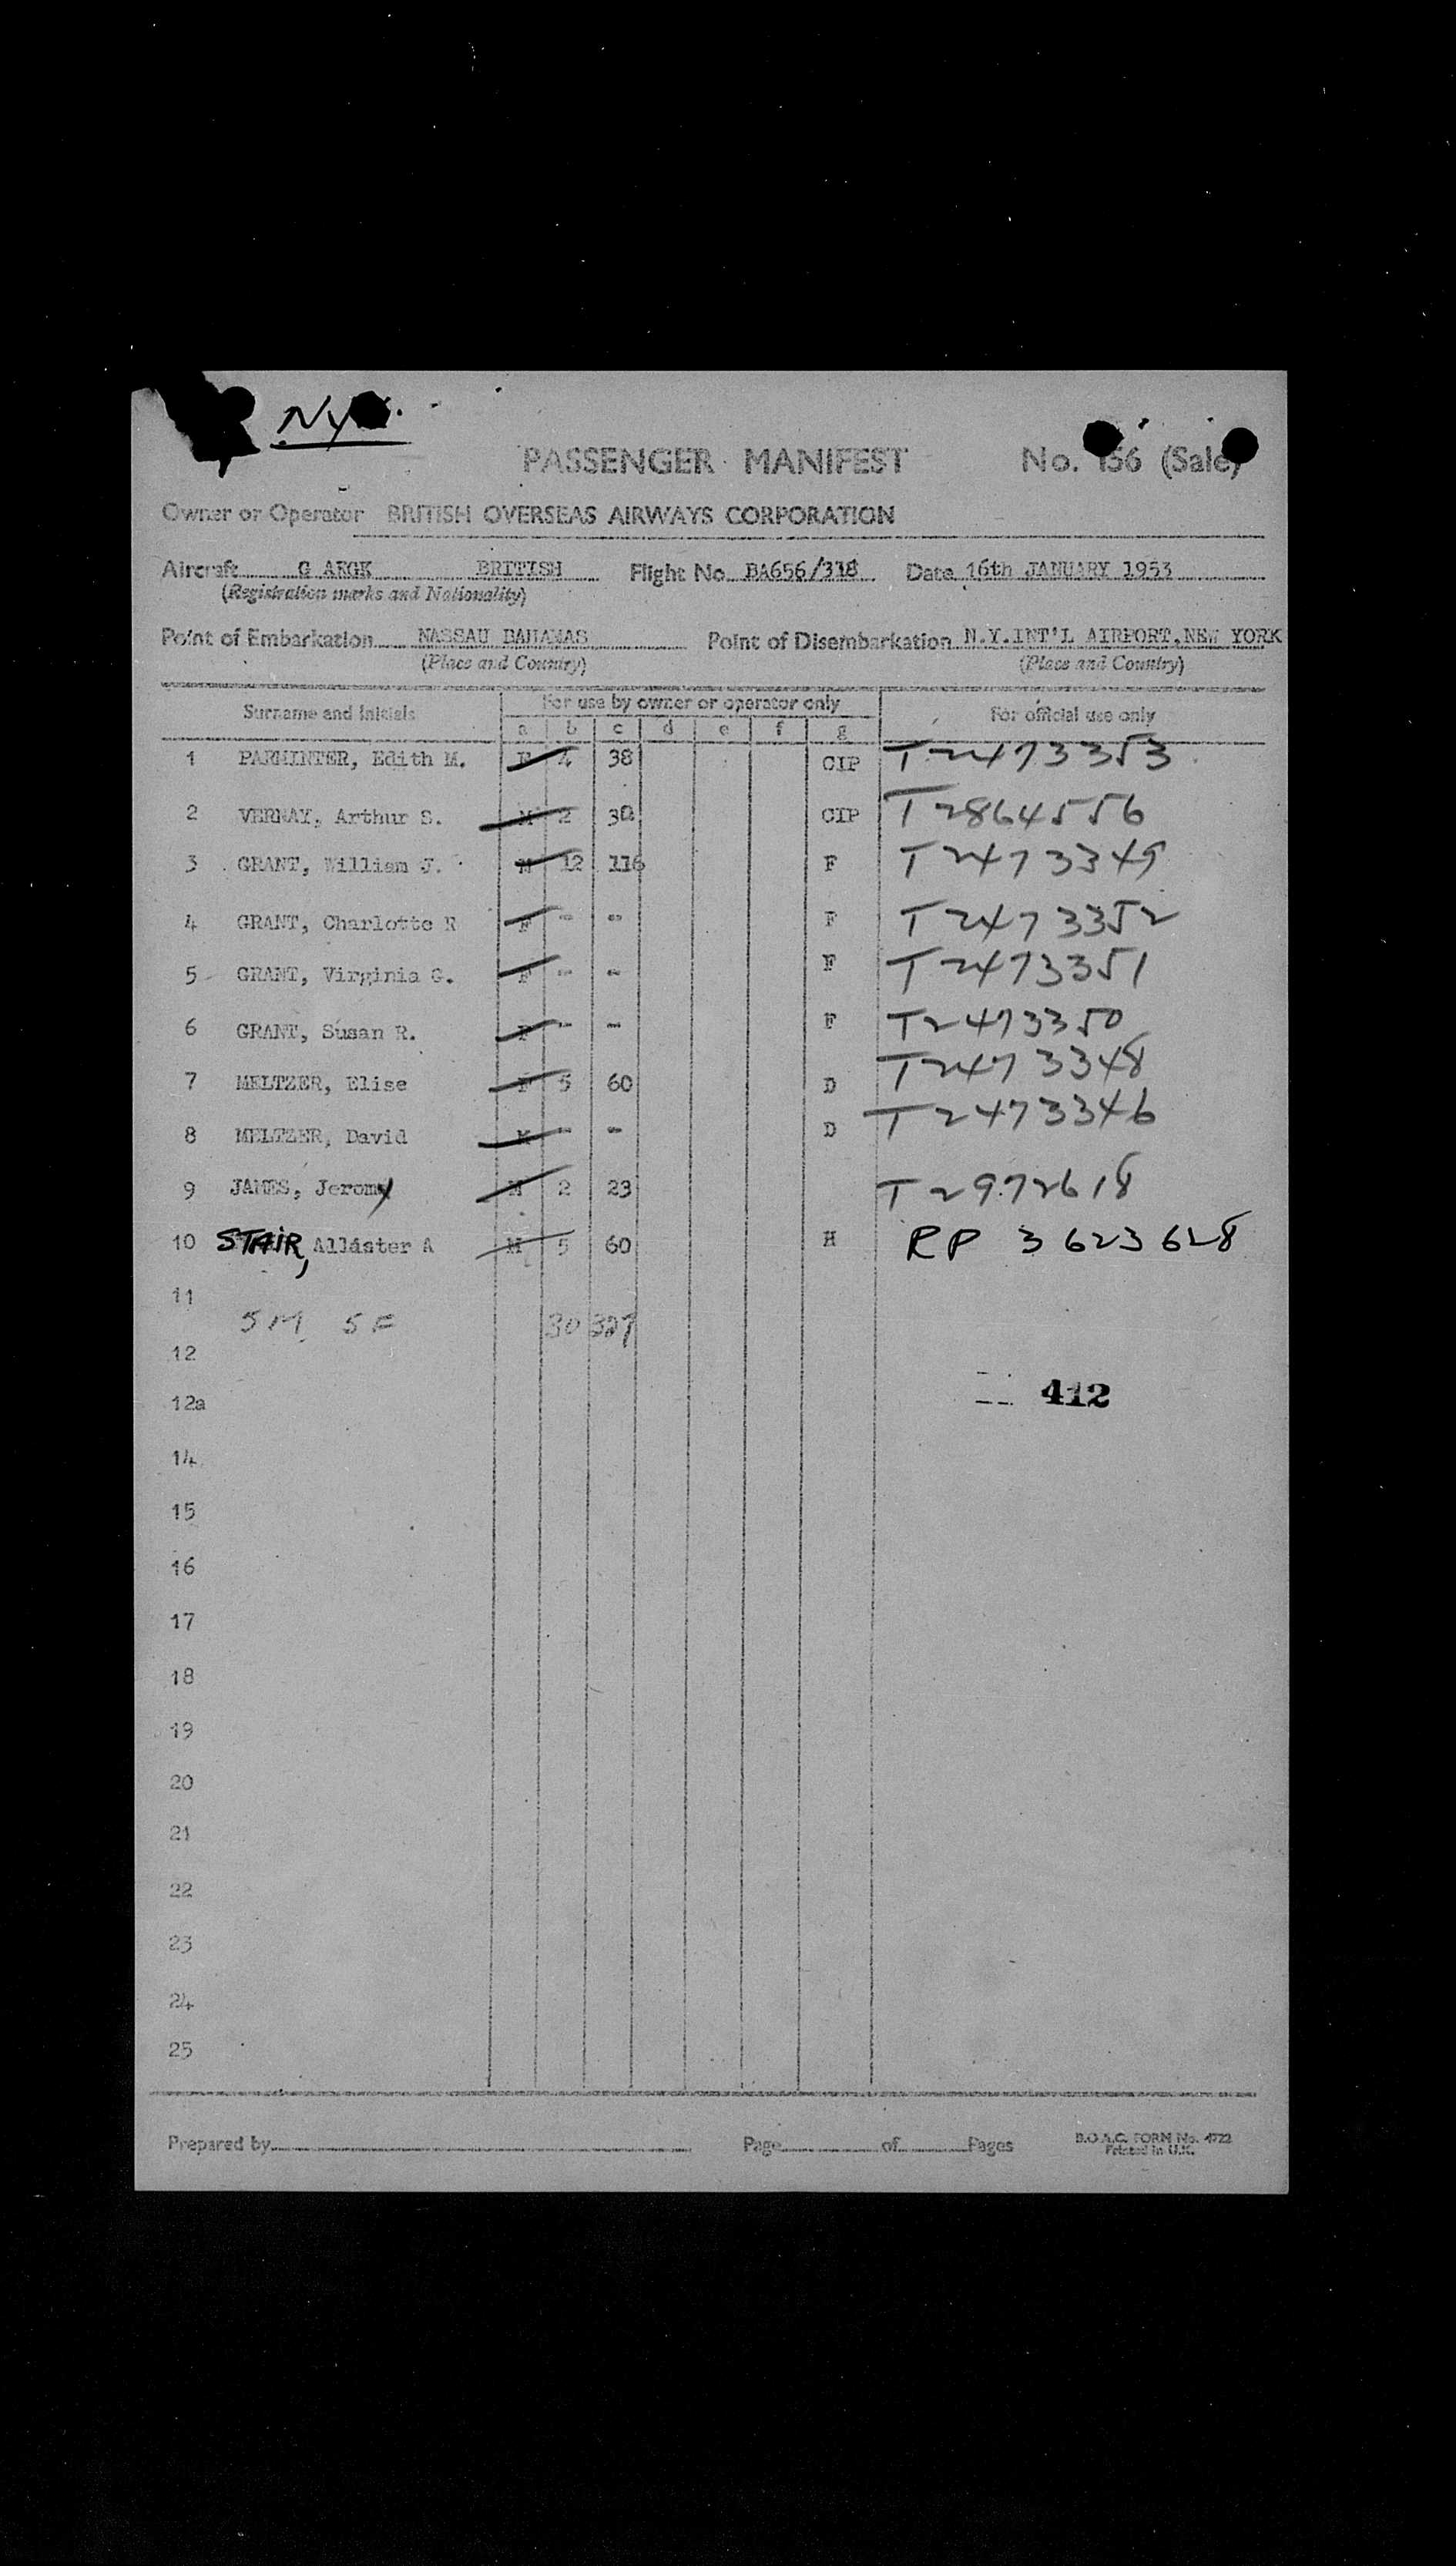 NY
PASSENGER MANIFEST No. 156 (Sale)
Owner or Operator BRITISH OVERSEAS AIRWAYS CORPORATION
Aircraft G AKGK BRITISH Flight No. BA656/318 Date 16th JANUARY 1953
(Registration marks and Nationality)
Point of Embarkation NASSAU BAHAMAS Point of Disembarkation N.Y.INT'L AIRPORT,NEW YORK
(Place and Country) (Place and Country)
Surname and Initials For use by owner or operator only For official use only
a b c d e f g
1 PARMINTER, Edith M. F 4 38 CIP T2473353
2 VERNAY, Arthur S. M 2 30 CIP T2864556
3 GRANT, William J. M 12 116 F T2473349
4 GRANT, Charlotte R F - - F T2473352
5 GRANT, Virginia G. F - - F T2473351
6 GRANT, Susan R. F - - F T2473350
7 MELTZER, Elise F 5 60 D T2473348
8 MELTZER, David M - - D T2473346
9 JAMES, Jeromy M 2 23 T2972618
10 STAIR, Allaster A M 5 60 H RP 3623628
11
5M 5F 30 327
12
412
12a
14
15
16
17
18
19
20
21
22
23
24
25
Prepared by Page of Pages B.O.A.C. FORM No. 4722
Printed in U.K.